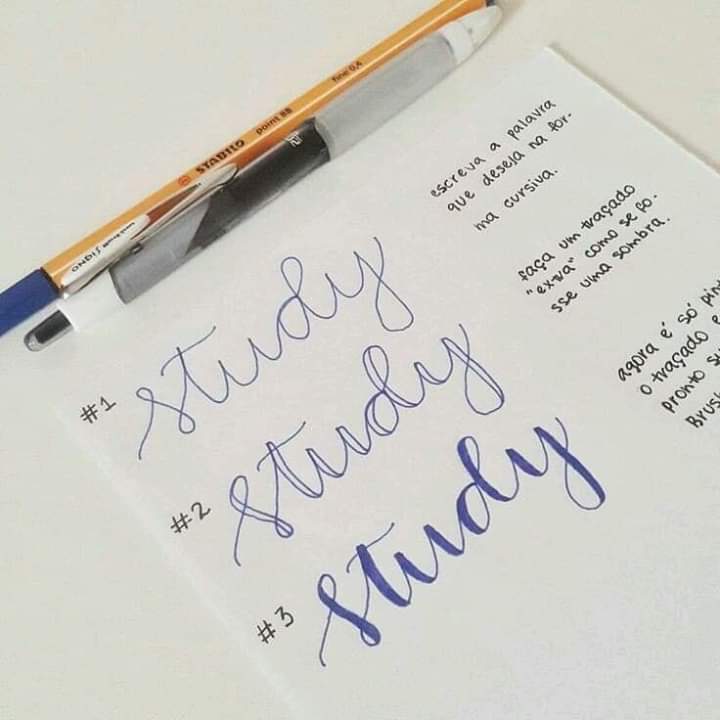 STABILO point 88 fine 0,4
uniball Signo
escreva a palavra
que deseja na for-
ma cursiva.
faça um traçado
"extra" como se fo-
sse uma sombra.
agora é só pin
o traçado e
pronto s
Brus
#1 study
#2 study
#3 study